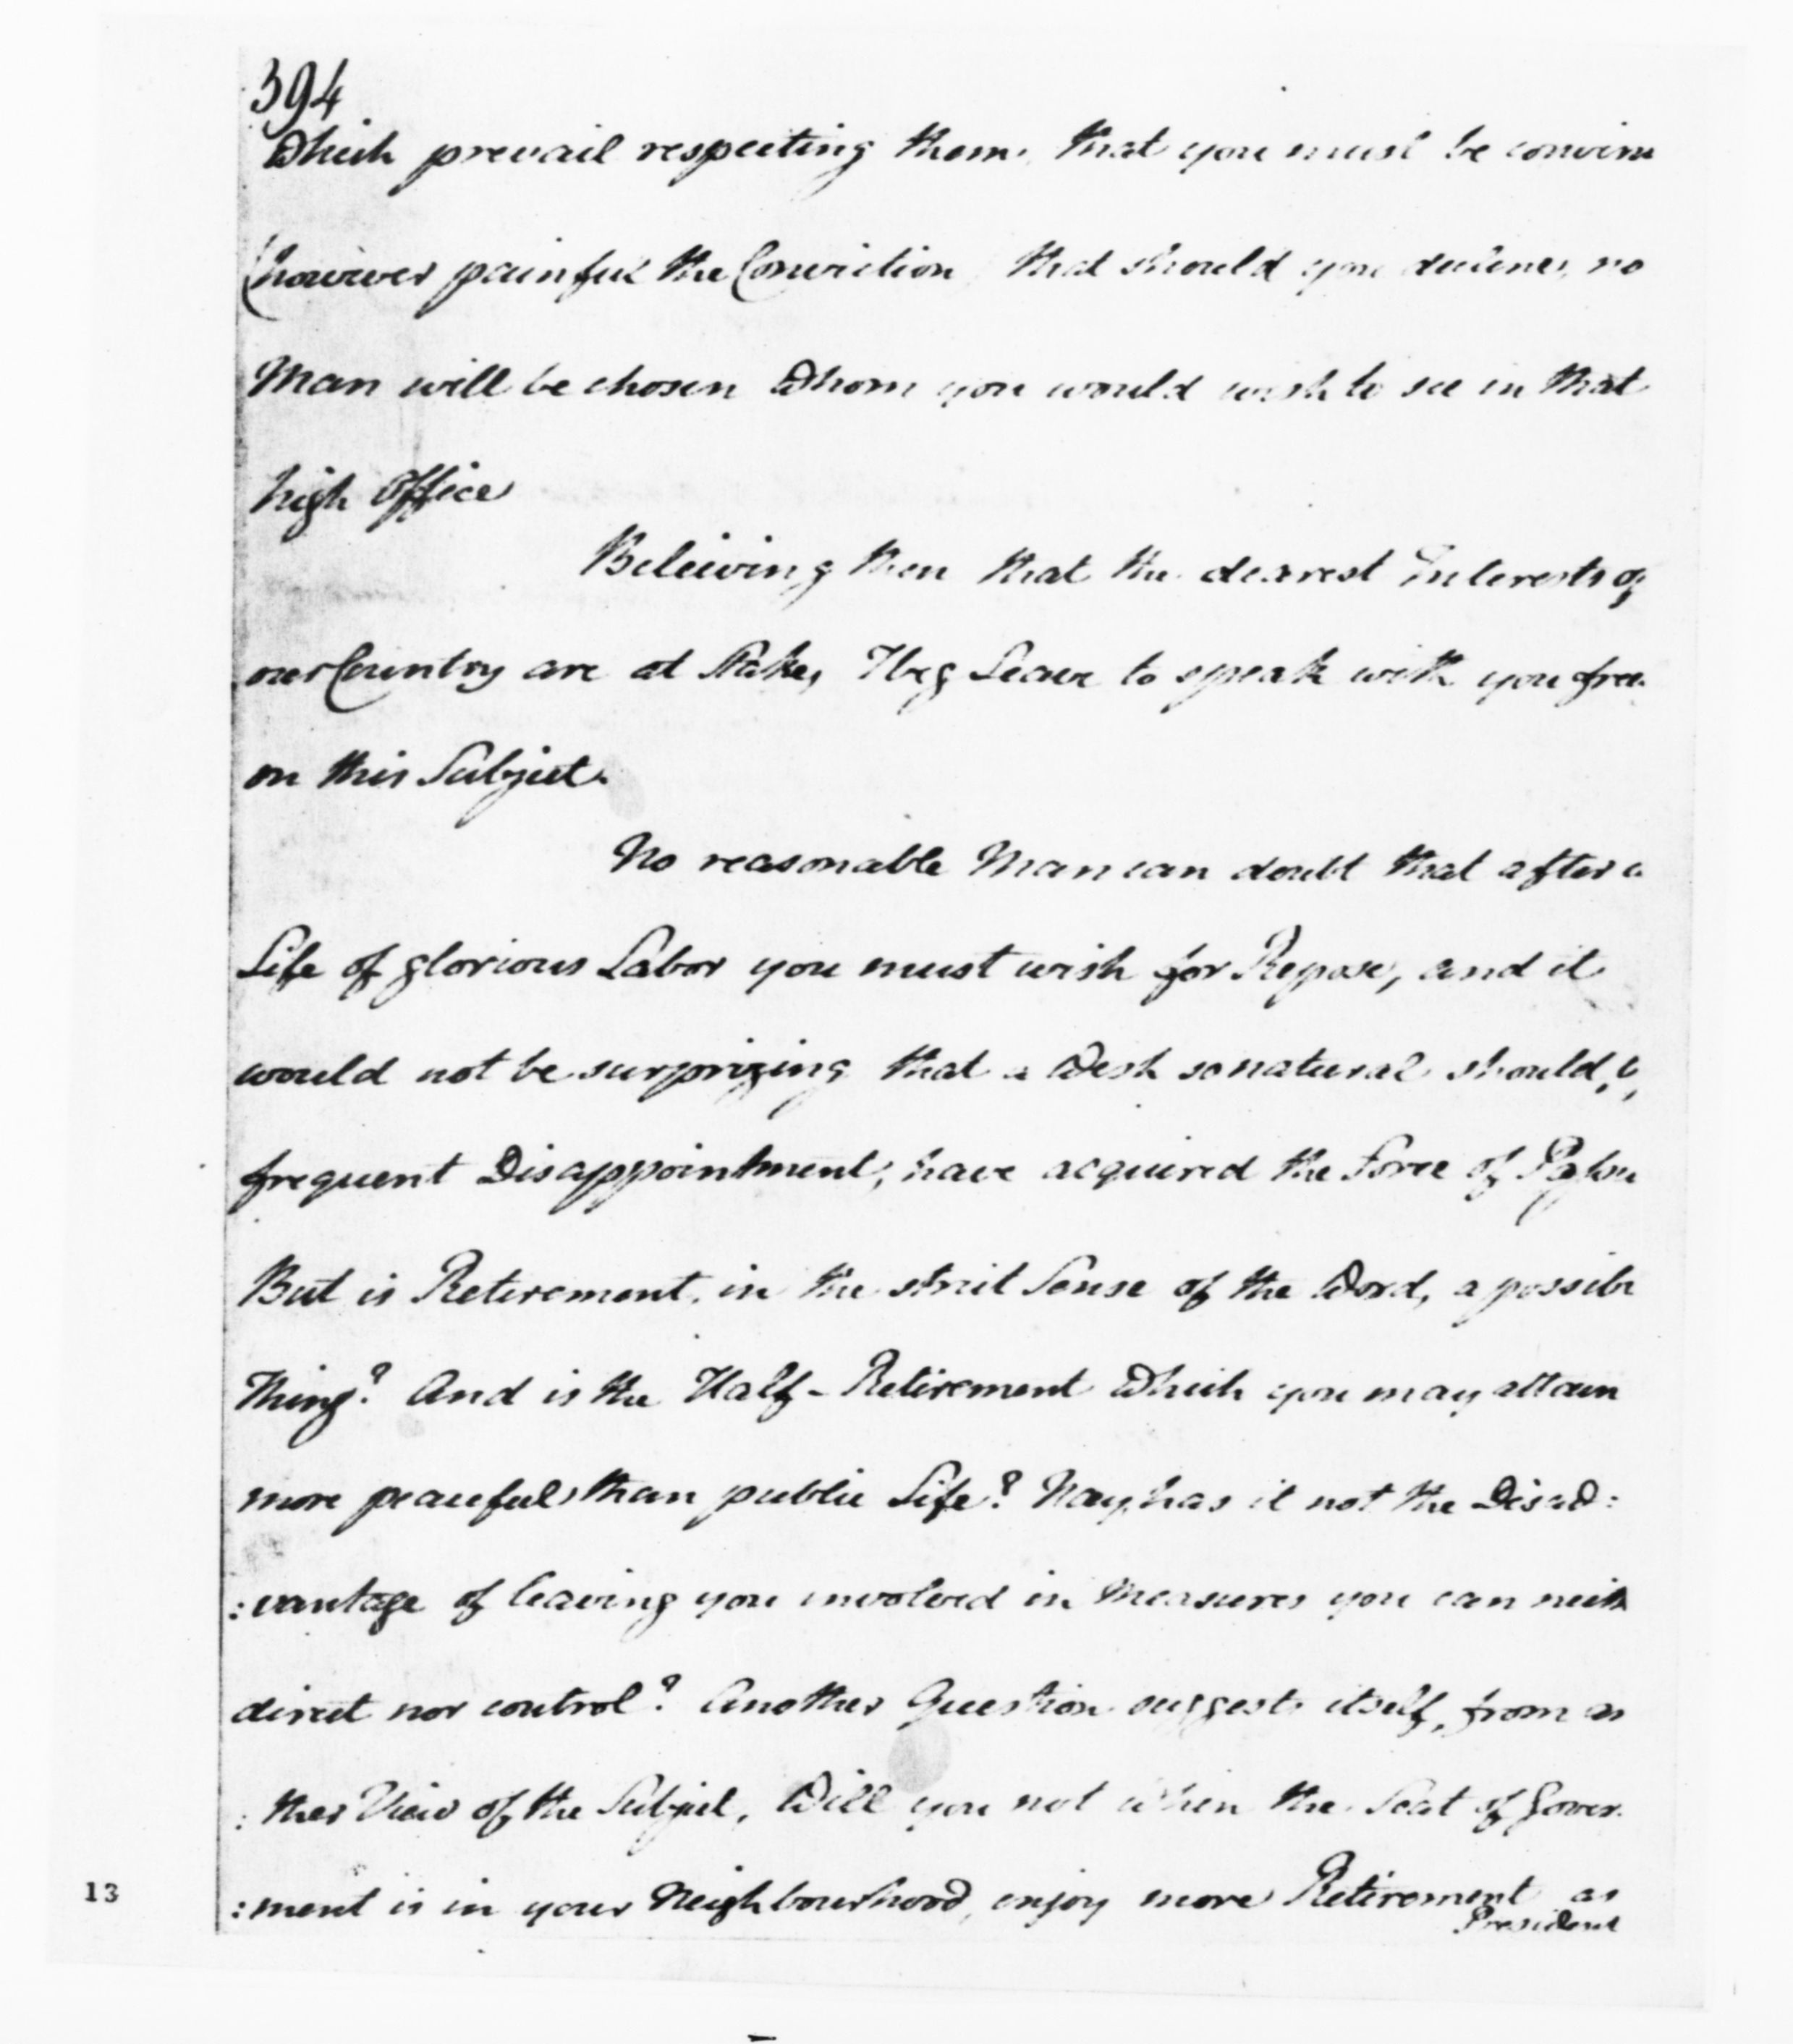 394
Which prevail respecting them, that you must be convinc
(however painful the Conviction that should you decline, no
Man will be chosen Whom you would wish to see in that
high Office
Beleiving then that the dearest Interests of
our Country are at Stake, I beg Leave to speak with you free
on this Subject.
No reasonable Man can doubt that after a
Life of glorious Labor you must wish for Repose, and it
would not be surprizing that a Wish so natural should, by
frequent Disappointment, have acquired the Force of Passion
But is Retirement, in the strict Sense of the Word, a possibl
Thing? And is the Half-Retirement Which you may attain
more peaceful than public Life? Nay, has it not the Disad:
:vantage of leaving you involved in Measures you can neith
direct nor control? Another Question suggests itself, from an
:ther View of the Subject, Will you not When the Seat of Govern
:ment is in your Neighbourhood, enjoy more Retirement as
President
13